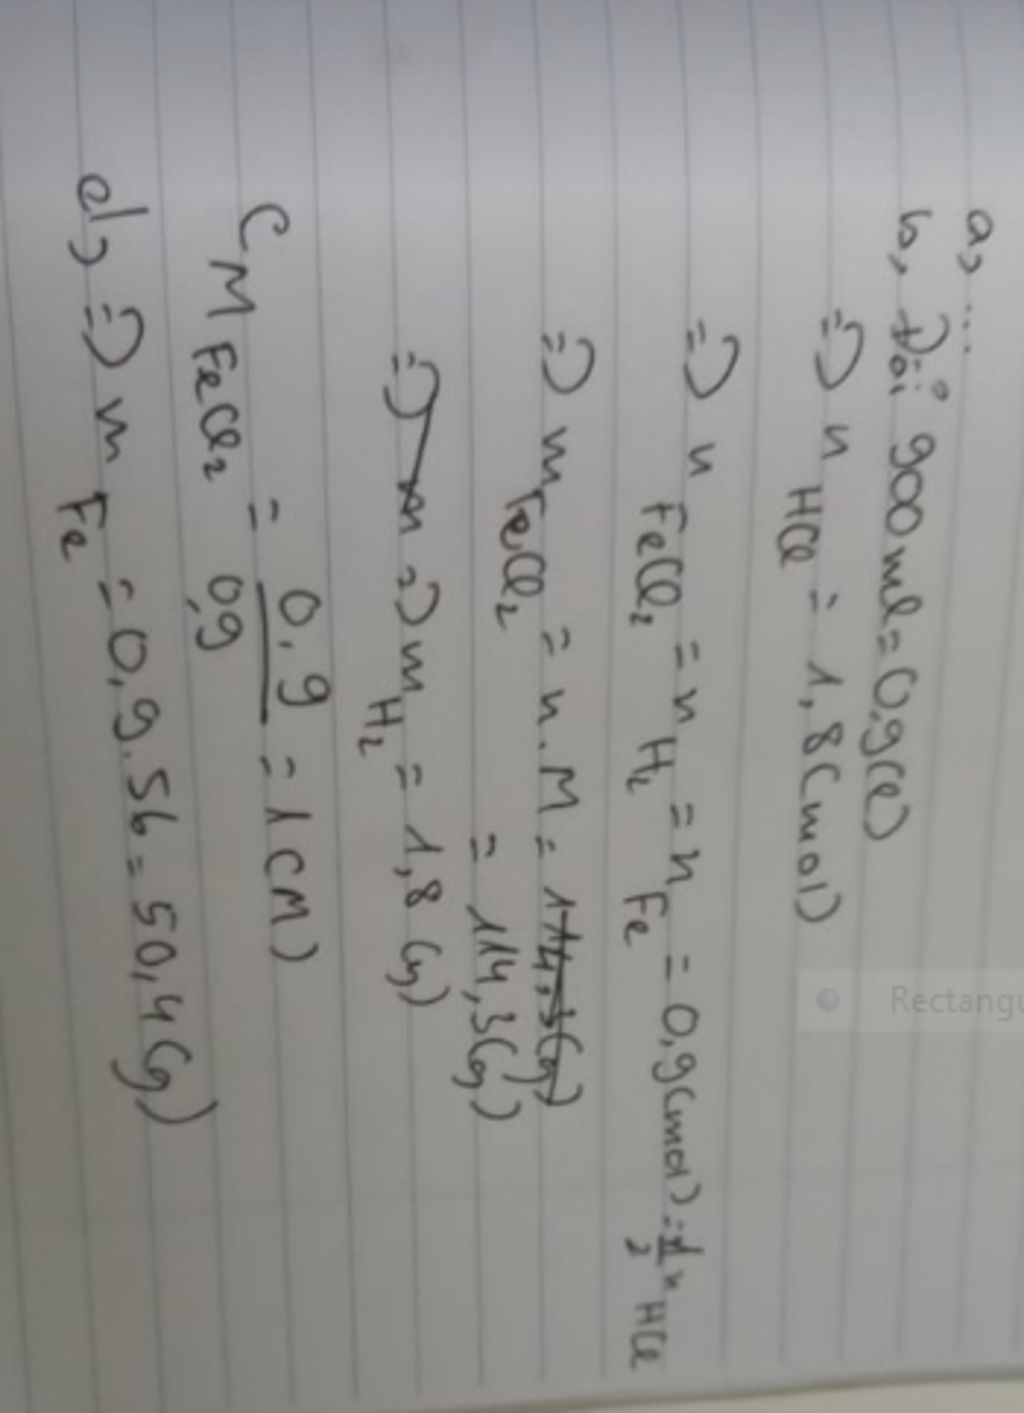 a, ...
b, Đổi 900ml = 0,9(l)
=> n HCl = 1,8(mol)
=> n FeCl2 = n H2 = n Fe = 0,9(mol) = 1/2 n HCl
=> m FeCl2 = n.M = 114,3(g)
= 114,3(g)
=> m => m H2 = 1,8(g)
CM FeCl2 = 0,9/0,9 = 1(M)
d, => m Fe = 0,9.56 = 50,4(g)
Rectangu